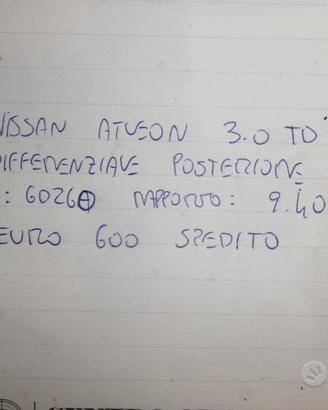 NISSAN ATLEON 3.0 TD
DIFFERENZIALE POSTERIORE
: 6026 RAPPORTO: 9.40
EURO 600 SPEDITO